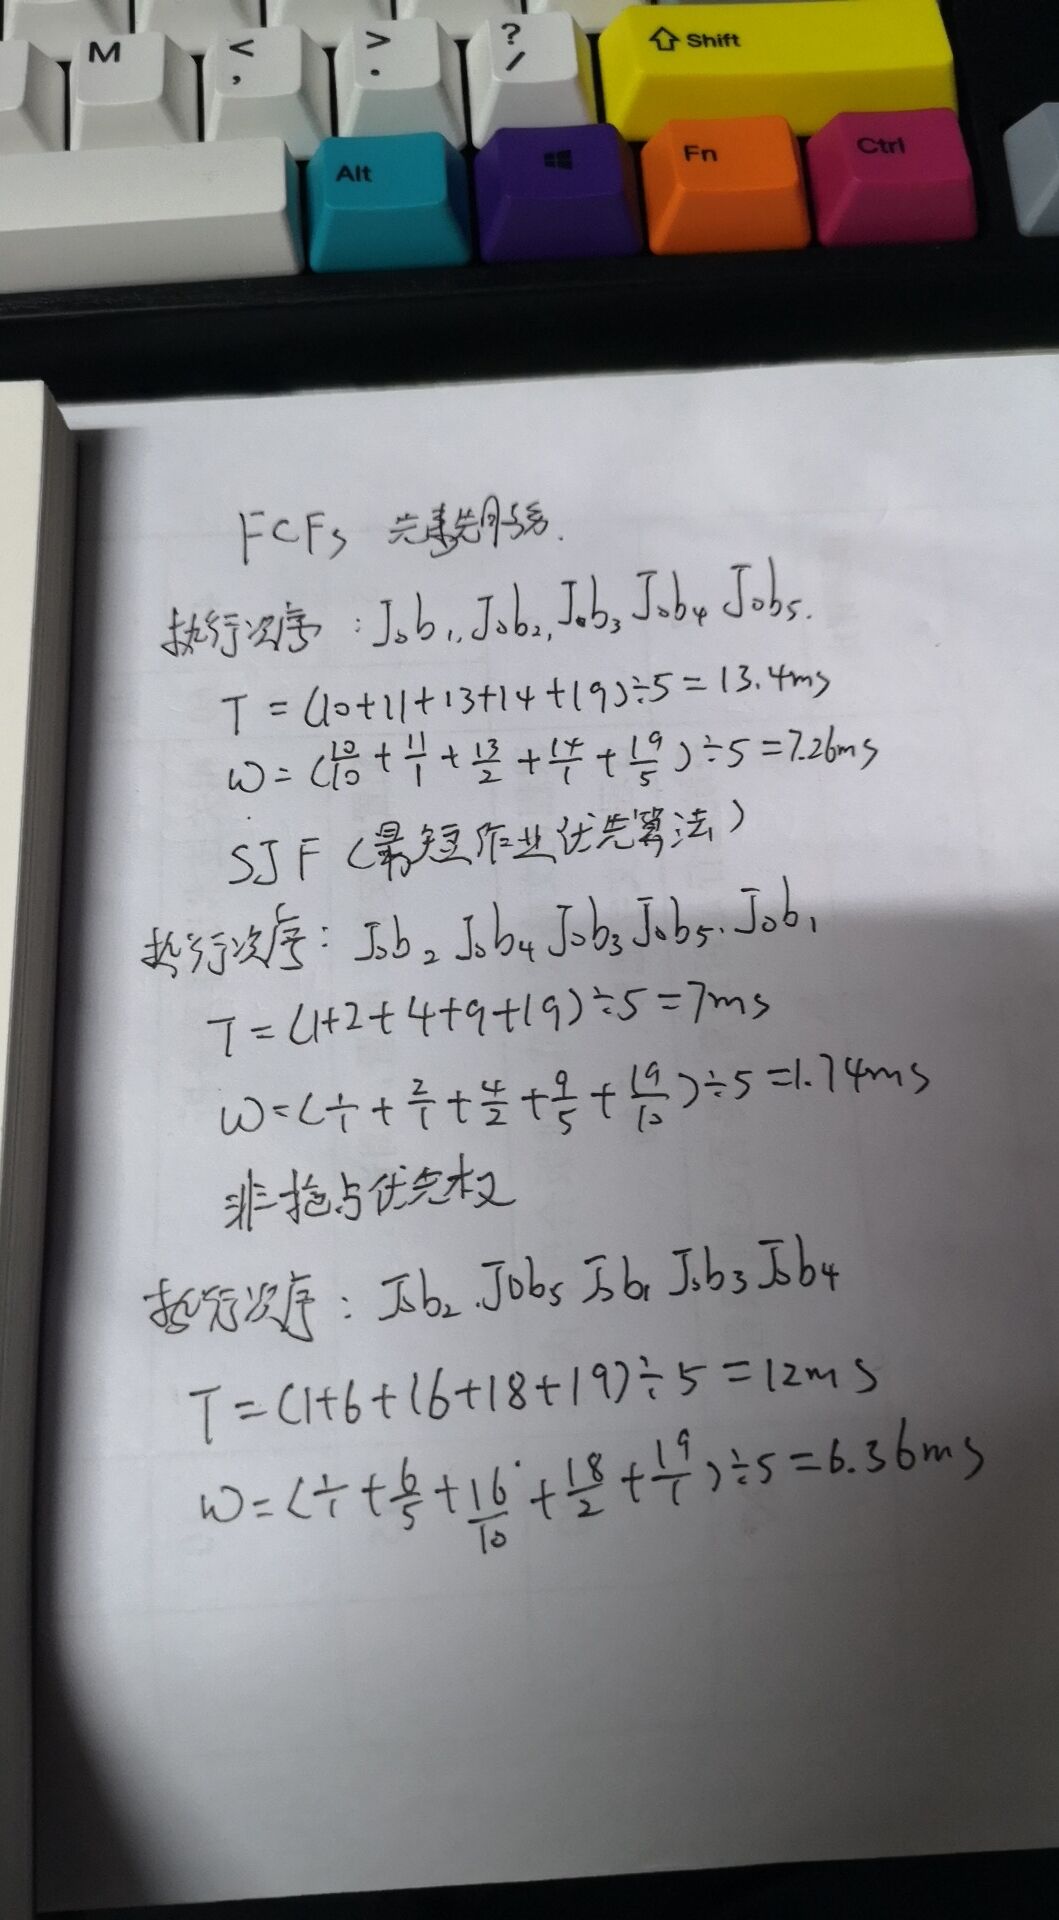 M < , > . ? / Shift
Alt Fn Ctrl
FCFs 先来先服务.
执行次序：Job₁, Job₂, Job₃ Job₄ Job₅.
T = (10+11+13+14+19)÷5 = 13.4ms
W = (10/10 + 11/1 + 13/2 + 14/1 + 19/5)÷5 = 7.26ms
SJF (最短作业优先算法)
执行次序：Job₂ Job₄ Job₃ Job₅. Job₁
T = (1+2+4+9+19)÷5 = 7ms
W = (1/1 + 2/1 + 4/2 + 9/5 + 19/10)÷5 = 1.74ms
非抢占优先权
执行次序：Job₂. Job₅ Job₁ Job₃ Job₄
T = (1+6+16+18+19)÷5 = 12ms
W = (1/1 + 6/5 + 16/10 + 18/2 + 19/1)÷5 = 6.36ms